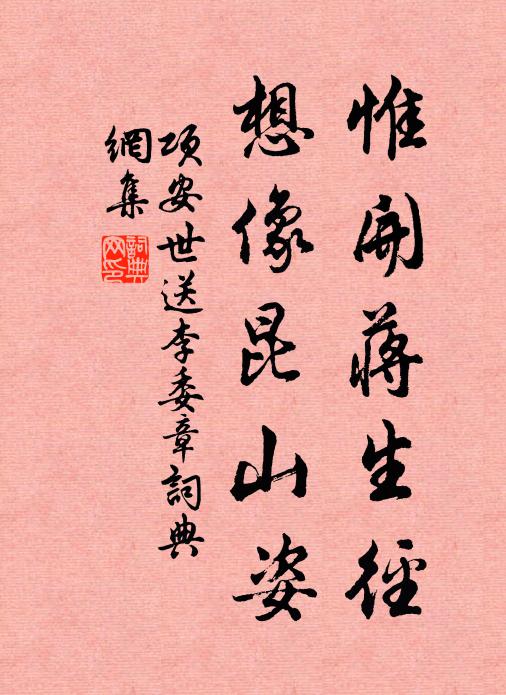 惟開蔣生徑
想像昆山姿
項安世送李委章詞典
網集
詞典網印